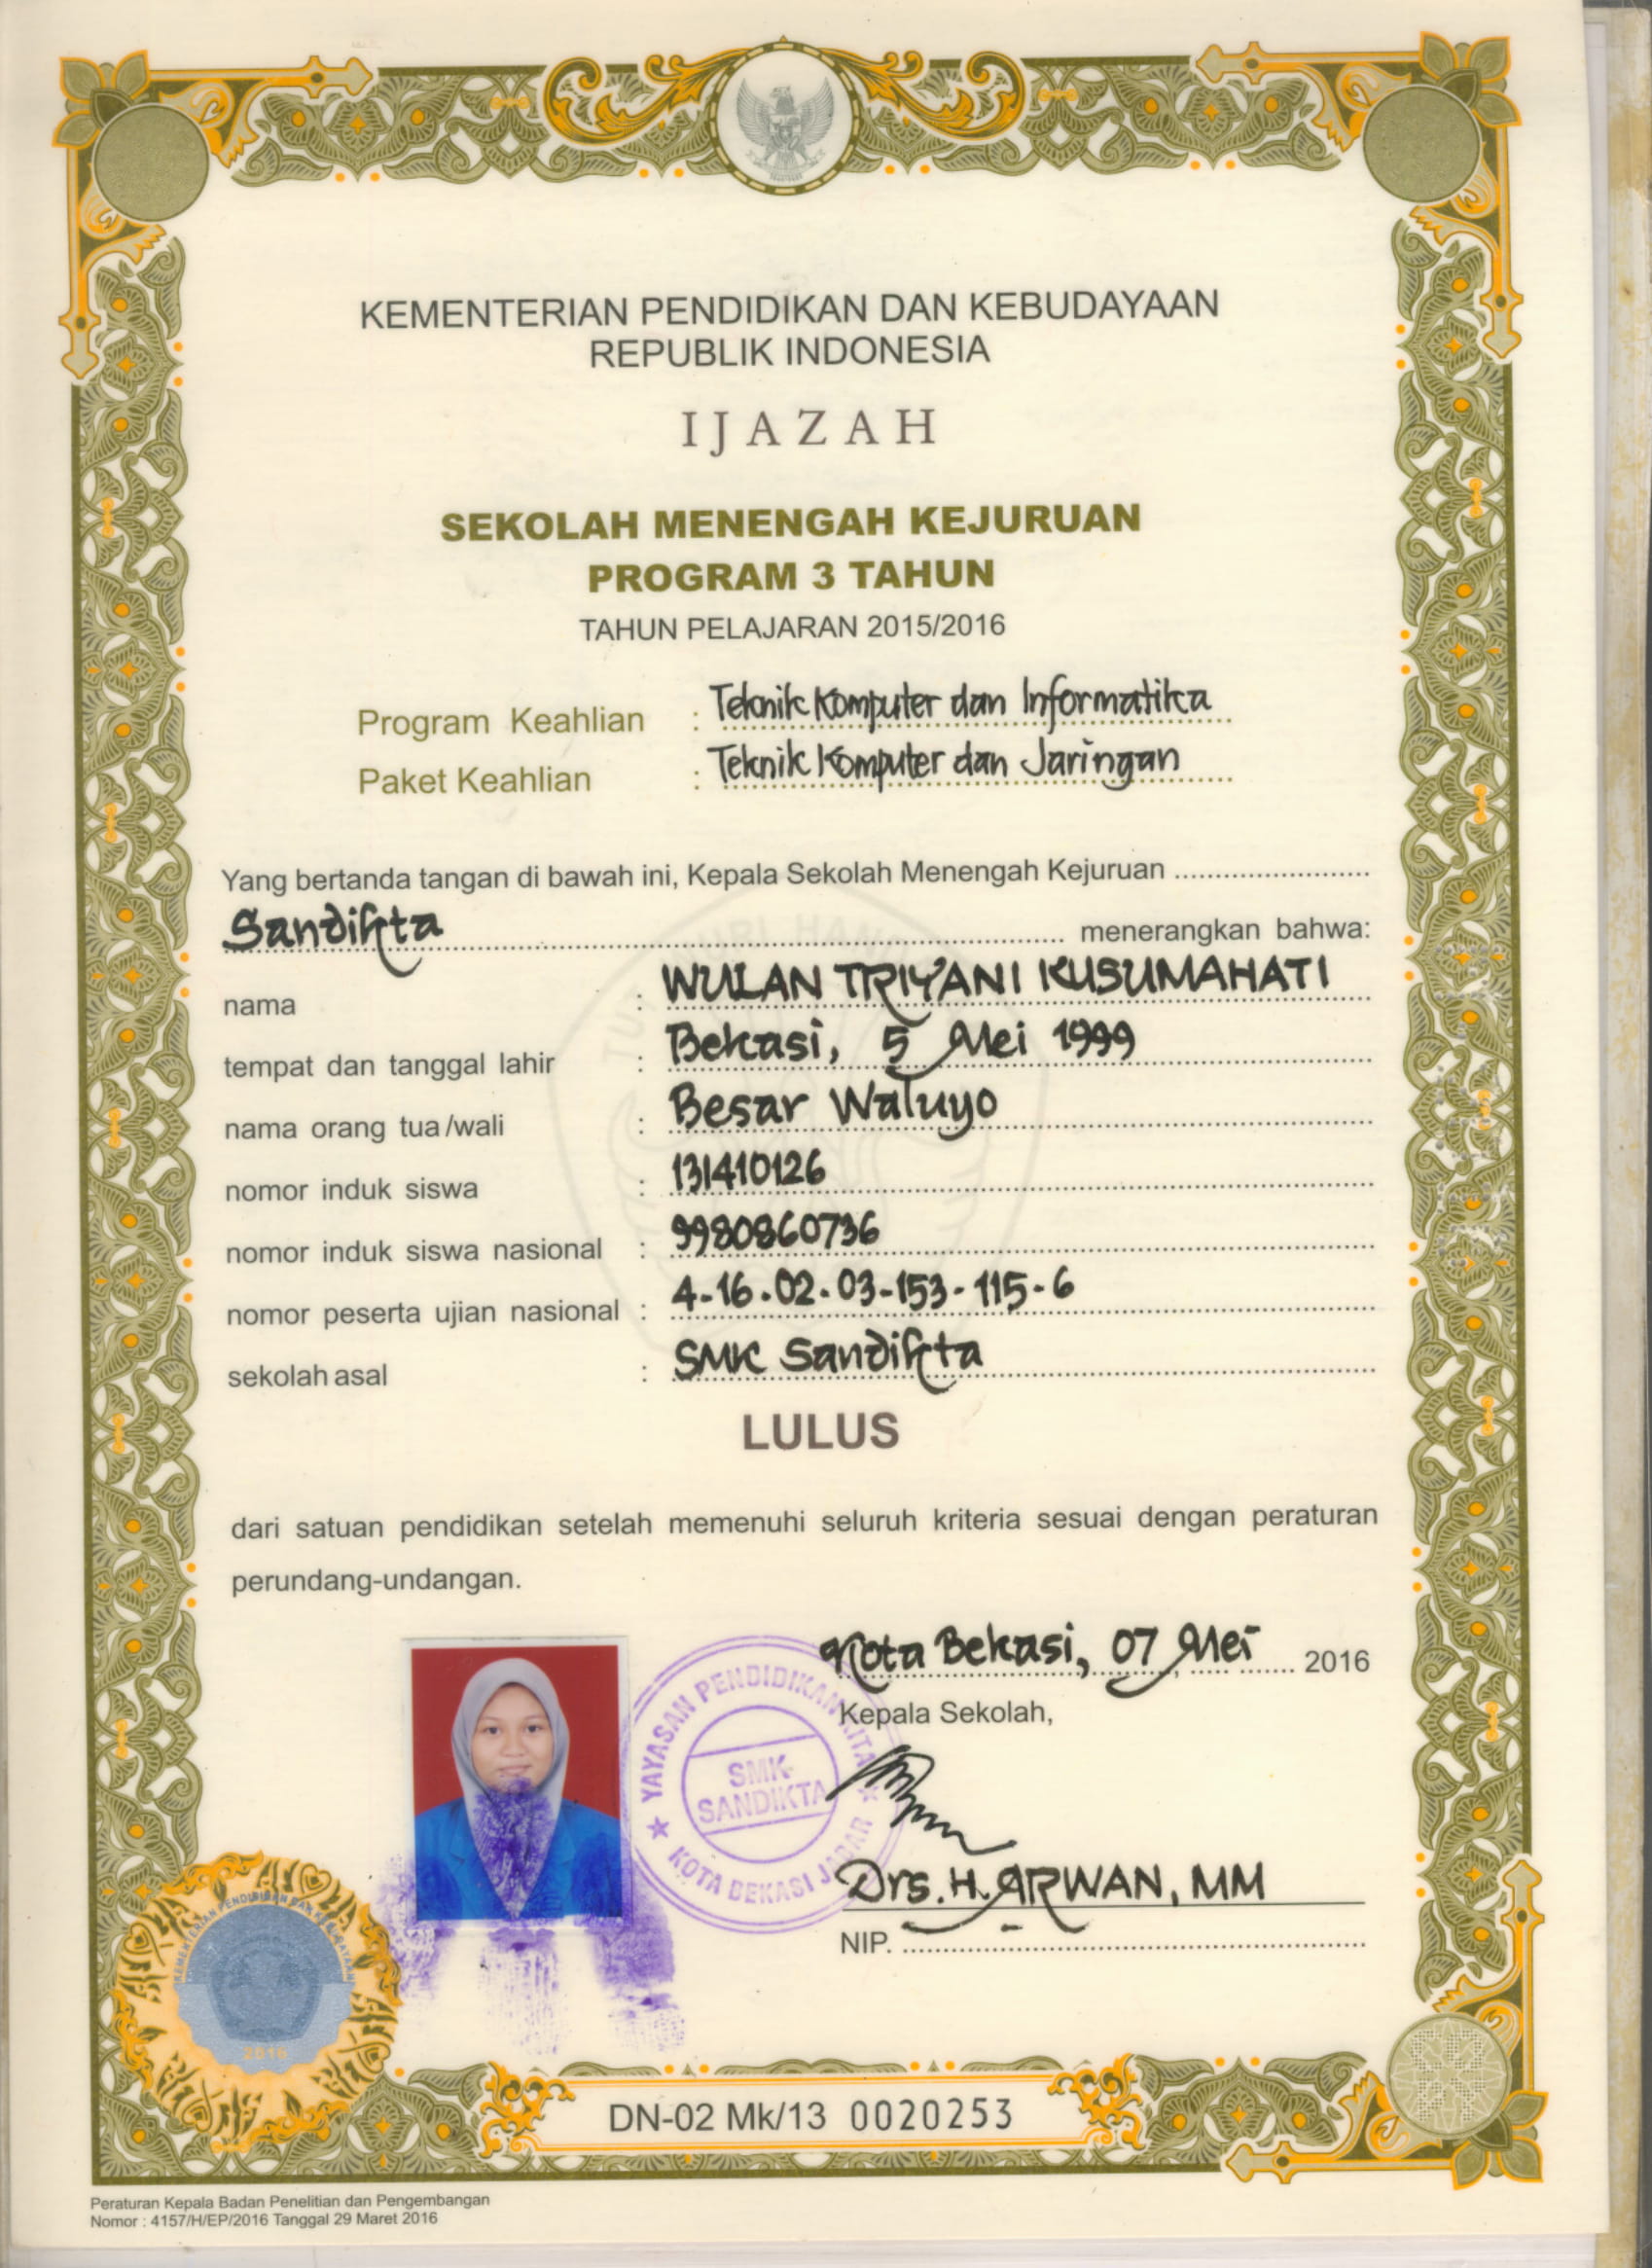 KEMENTERIAN PENDIDIKAN DAN KEBUDAYAAN
REPUBLIK INDONESIA
IJAZAH
SEKOLAH MENENGAH KEJURUAN
PROGRAM 3 TAHUN
TAHUN PELAJARAN 2015/2016
Program Keahlian : Teknik Komputer dan Informatika
Paket Keahlian : Teknik Komputer dan Jaringan
Yang bertanda tangan di bawah ini, Kepala Sekolah Menengah Kejuruan
Sandikta menerangkan bahwa:
nama : WULAN TRIYANI KUSUMAHATI
tempat dan tanggal lahir : Bekasi, 5 Mei 1999
nama orang tua/wali : Besar Waluyo
nomor induk siswa : 131410126
nomor induk siswa nasional : 9980860736
nomor peserta ujian nasional : 4-16-02-03-153-115-6
sekolah asal : SMK Sandikta
LULUS
dari satuan pendidikan setelah memenuhi seluruh kriteria sesuai dengan peraturan
perundang-undangan.
Kota Bekasi, 07 Mei 2016
Kepala Sekolah,
YAYASAN PENDIDIKAN KITA
SMK-
SANDIKTA
KOTA BEKASI JABAR
Drs. H. ARWAN, MM
NIP.
KEMENTERIAN PENDIDIKAN DAN KEBUDAYAAN
2016
DN-02 Mk/13 0020253
Peraturan Kepala Badan Penelitian dan Pengembangan
Nomor : 4157/H/EP/2016 Tanggal 29 Maret 2016